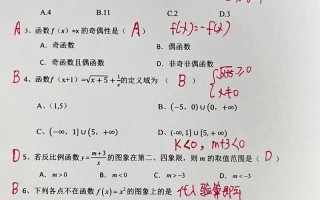 A.2 B.11 C.2 D.3
A 3、函数f（x）=x的奇偶性是（ A ） f(-x)=-f(x)
A、奇函数 B、偶函数
C、奇函数且偶函数 D、非奇非偶函数
B 4、函数 f(x+1)=√x+5+1/x的定义域为 （ B ） {√x+5≥0 x≠0
A、(1,5) B、(−5，0)∪(0，+∞)
C、(−∞，1]∪[5，+∞) D、(−∞，1]∪(5，+∞)
K<0，m+3<0
D 5、若反比例函数y=m+3/x的图象在第二、四象限，则 m 的取值范围是（ D ）
A．m>0 B．m<0 C．m>−3 D．m<−3
B 6、下列各点不在函数f(x)=x²的图象上的是 代入验算即可